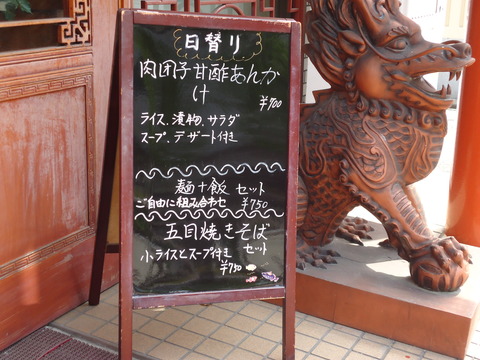 日替り
肉団子甘酢あんか
け
¥700
ライス、漬物、サラダ
スープ、デザート付き
麺+飯 セット
ご自由に組み合わせ ¥750
五目焼きそば
セット
小ライスとスープ付き
¥750